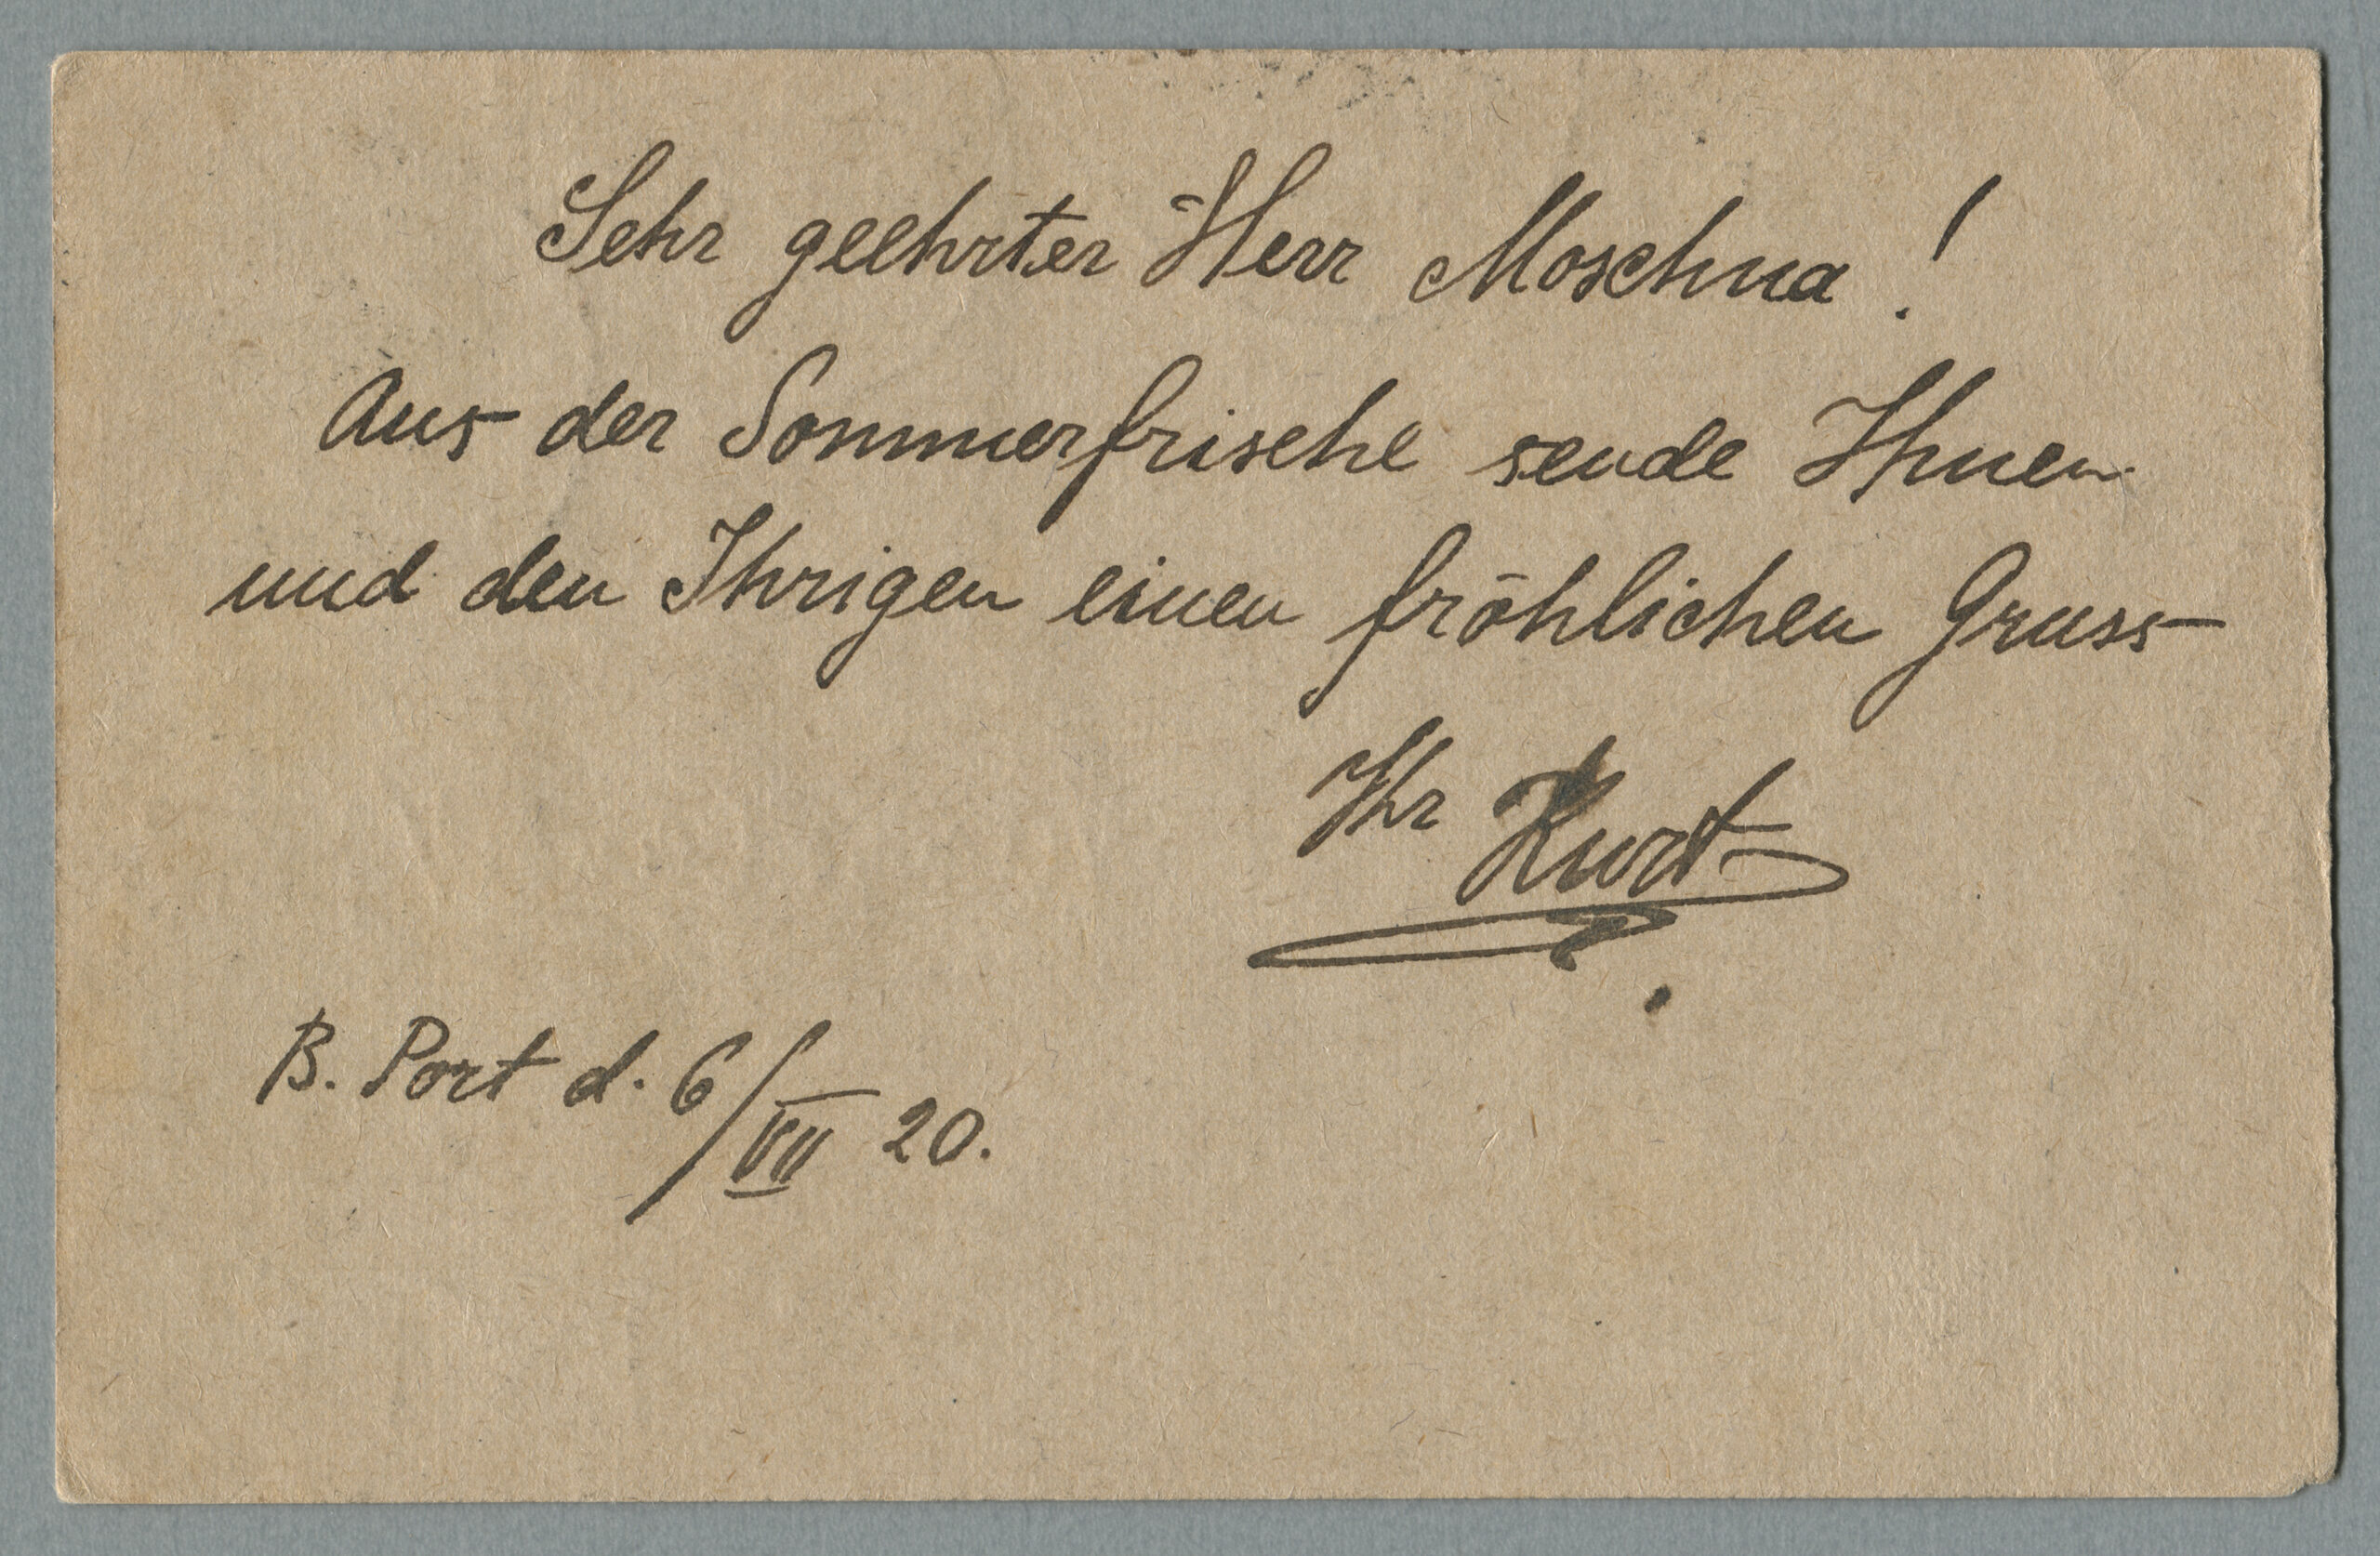 Sehr geehrter Herr Moschna!
Aus der Sommerfrische sende Ihnen
und den Ihrigen einen fröhlichen Gruss
Ihr Kurt
B. Port d. 6/VII 20.